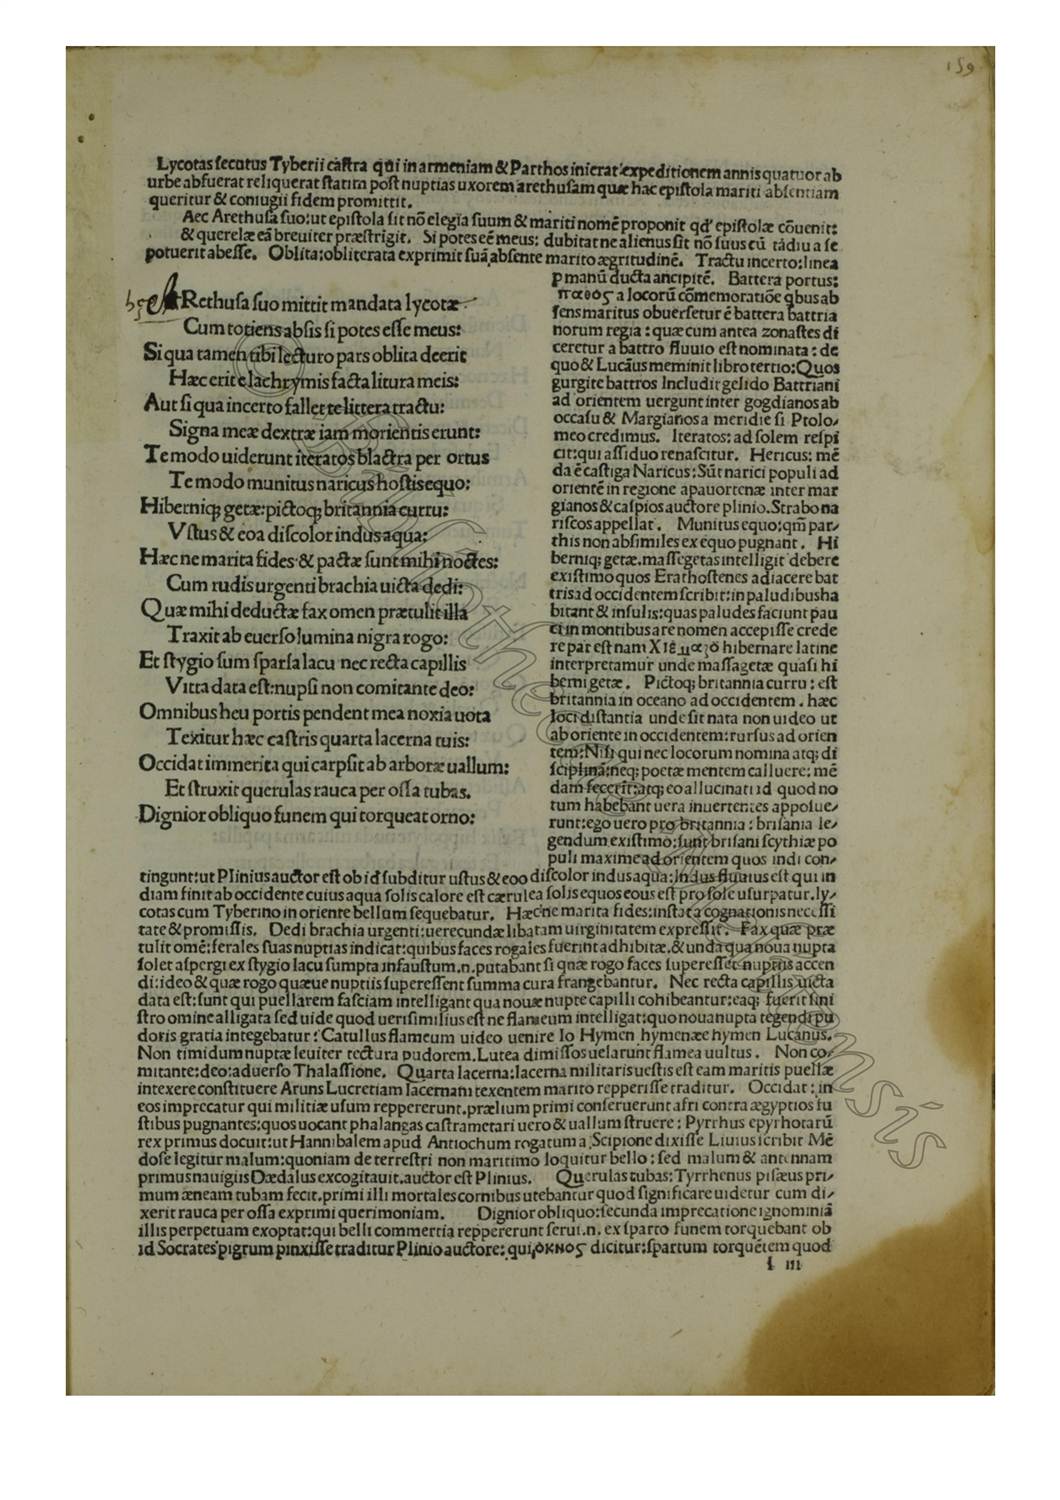 159
Lycotas secutus Tyberii castra qui in armeniam & Parthos inierat expeditionem annis quatuor ab
urbe abfuerat reliquerat statim post nuptias uxorem arethusam quæ hac epistola mariti absentiam
queritur & coniugii fidem promittit.
Aec Arethusa suo: ut epistola sit nõ elegia suum & mariti nomẽ proponit qd' epistolæ cõuenit:
& querelæ eã breuiter præstrigit. Si potes eẽ meus: dubitat ne alienus sit nõ suus cũ tãdiu a se
potuerit abesse. Oblita: obliterata exprimit suã absente marito ægritudinẽ. Tractu incerto: linea
ARethusa suo mittit mandata lycotæ
Cum totiens absis si potes esse meus:
Si qua tamen tibi lecturo pars oblita deerit
Hæc erit e lachrymis facta litura meis:
Aut si qua incerto fallet te littera tractu:
Signa meæ dextræ iam morientis erunt:
Te modo uiderunt iteratos blactra per ortus
Te modo munitus naricus hostis equo:
Hiberniq; getæ: pictoq; britannia curru:
Vstus & eoa discolor indus aqua:
Hæc ne marita fides & pactæ sunt mihi noctes:
Cum rudis urgenti brachia uicta dedi:
Quæ mihi deductæ fax omen prætulit illa
Traxit ab euerso lumina nigra rogo:
Et stygio sum sparsa lacu nec recta capillis
Vitta data est: nupsi non comitante deo:
Omnibus heu portis pendent mea noxia uota
Texitur hæc castris quarta lacerna tuis:
Occidat immerita qui carpsit ab arboræ uallum:
Et struxit querulas rauca per ossa tubas.
Dignior obliquo funem qui torqueat orno:
p manũ ducta ancipitẽ. Battera portus:
παθος a locorũ cõmemoratiõe qbus ab
sens maritus obuersetur ẽ battera battria
norum regia: quæ cum antea zonastes di
ceretur a battro fluuio est nominata: de
quo & Lucãus meminit libro tertio: Quos
gurgite battros Includit gelido Battriani
ad orientem uergunt inter gogdianos ab
occasu & Margianos a meridie si Ptolo/
meo credimus. Iteratos: ad solem respi
cit: qui assiduo renascitur. Hericus: mẽ
da ẽ castiga Naricus: Sũt narici populi ad
orientẽ in regione apauortenæ inter mar
gianos & caspios auctore plinio. Strabo na
riscos appellat. Munitus equo: qm̃ par/
this non absimiles ex equo pugnant. Hi
berniq; getæ. massegetas intelligit debere
existimo quos Erathostenes adiacere bat
tris ad occidentem scribit: in paludibus ha
bitant & insulis: quas paludes faciunt pau
ci in montibus a re nomen accepisse crede
re par est nam hibernare latine
interpretamur unde massagetæ quasi hi
berni getæ. Pictoq; britannia curru: est
britannia in oceano ad occidentem. hæc
loci distantia unde sit nata non uideo ut
ab oriente in occidentem: rursus ad orien
tem: Nisi qui nec locorum nomina atq; di
sciplinã: neq; poetæ mentem calluere: mẽ
dam fecerĩt: atq; eo allucinati id quod no
tum habebant uera inuertentes apposue/
runt: ego uero pro britannia: brisania le/
gendum existimo: sunt brisani scythiæ po
puli maxime ad orientem quos indi con/
tingunt: ut Plinius auctor est ob id subditur ustus & eoo discolor indus aqua: Indus fluuius est qui in
diam finit ab occidente cuius aqua solis calore est cærulea solis equos eous est pro sole usurpatur. ly/
cotas cum Tyberino in oriente bellum sequebatur. Hæc ne marita fides: instata cognationis necessi
tate & promissis. Dedi brachia urgenti: uerecundæ libatam uirginitatem expressit. Fax quæ præ
tulit omẽ: ferales suas nuptias indicat: quibus faces rogales fuerint adhibitæ. & unda qua noua nupta
solet aspergi ex stygio lacu sumpta infaustum. n. putabant si quæ rogo faces superessẽt nuptiis accen
di: ideo & quæ rogo quæue nuptiis superessent summa cura frangebantur. Nec recta capillis uicta
data est: sunt qui puellarem fasciam intelligant qua nouæ nupte capilli cohibeantur: eaq; fuerit sini
stro omine alligata sed uide quod uerisimilius est ne flameum intelligat: quo noua nupta tegendi pu
doris gratia integebatur: Catullus flameum uideo uenire Io Hymen hymenæe hymen Lucanus.
Non timidum nuptæ leuiter tectura pudorem. Lutea dimissos uelarunt flamea uultus. Non co/
mitante: deo: aduerso Thalassione. Quarta lacerna: lacerna militaris uestis est eam maritis puellæ
intexere constituere Aruns Lucretiam lacernam texentem marito repperisse traditur. Occidat: in
eos imprecatur qui militiæ usum reppererunt. prælium primi conseruerunt afri contra ægyptios fu
stibus pugnantes: quos uocant phalangas castrametari uero & uallum struere: Pyrrhus epyrhotarũ
rex primus docuit: ut Hannibalem apud Antiochum rogatum a Scipione dixisse Liuius scribit Mẽ
dose legitur malum: quoniam de terrestri non maritimo loquitur bello: sed malum & antennam
primus nauigiis Dædalus excogitauit. auctor est Plinius. Querulas tubas: Tyrrhenus pisæus pri/
mum æneam tubam fecit. primi illi mortales cornibus utebantur quod significare uidetur cum di/
xerit rauca per ossa exprimi querimoniam. Dignior obliquo: secunda imprecatione ignominiã
illis perpetuam exoptat: qui belli commertia reppererunt serui. n. ex sparto funem torquebant ob
id Socrates pigrum pinxisse traditur Plinio auctore: qui οκνος dicitur: spartum torquẽtem quod
f iii